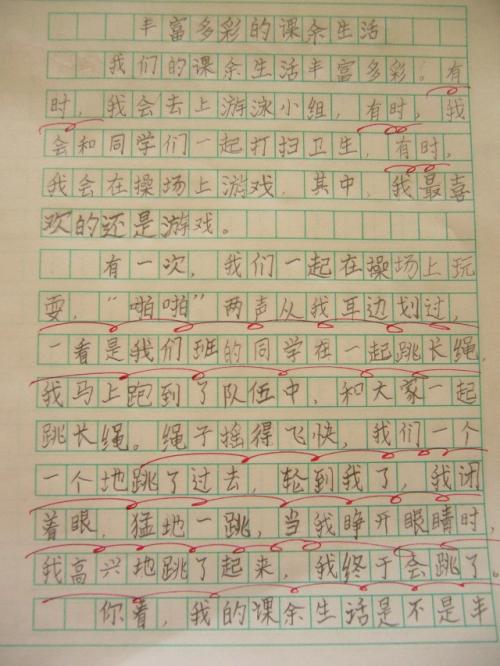 丰富多彩的课余生活
我们的课余生活丰富多彩。有
时，我会去上游泳小组，有时，我
会和同学们一起打扫卫生，有时，
我会在操场上游戏．其中，我最喜
欢的还是游戏。
有一次，我们一起在操场上玩
耍，“啪啪”两声从我耳边划过，
一看是我们班的同学在一起跳长绳，
我马上跑到了队伍中，和大家一起
跳长绳。绳子摇得飞快，我们一个
一个地跳了过去，轮到我了，我闭
着眼，猛地一跳，当我睁开眼睛时，
我高兴地跳了起来，我终于会跳了。
你看，我的课余生活是不是丰